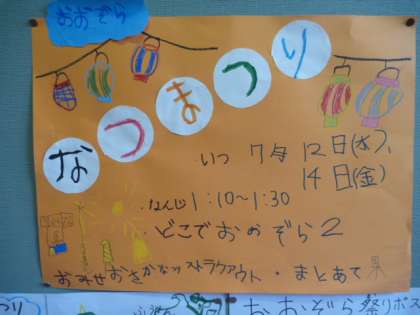 おおぞら
なつまつり
いつ 7月 12日(水)、
14日(金)
なんじ 1:10〜1:30
どこで おおぞら2
おみせ おさかなつり ストラックアウト・まとあて
おおぞら祭りポス